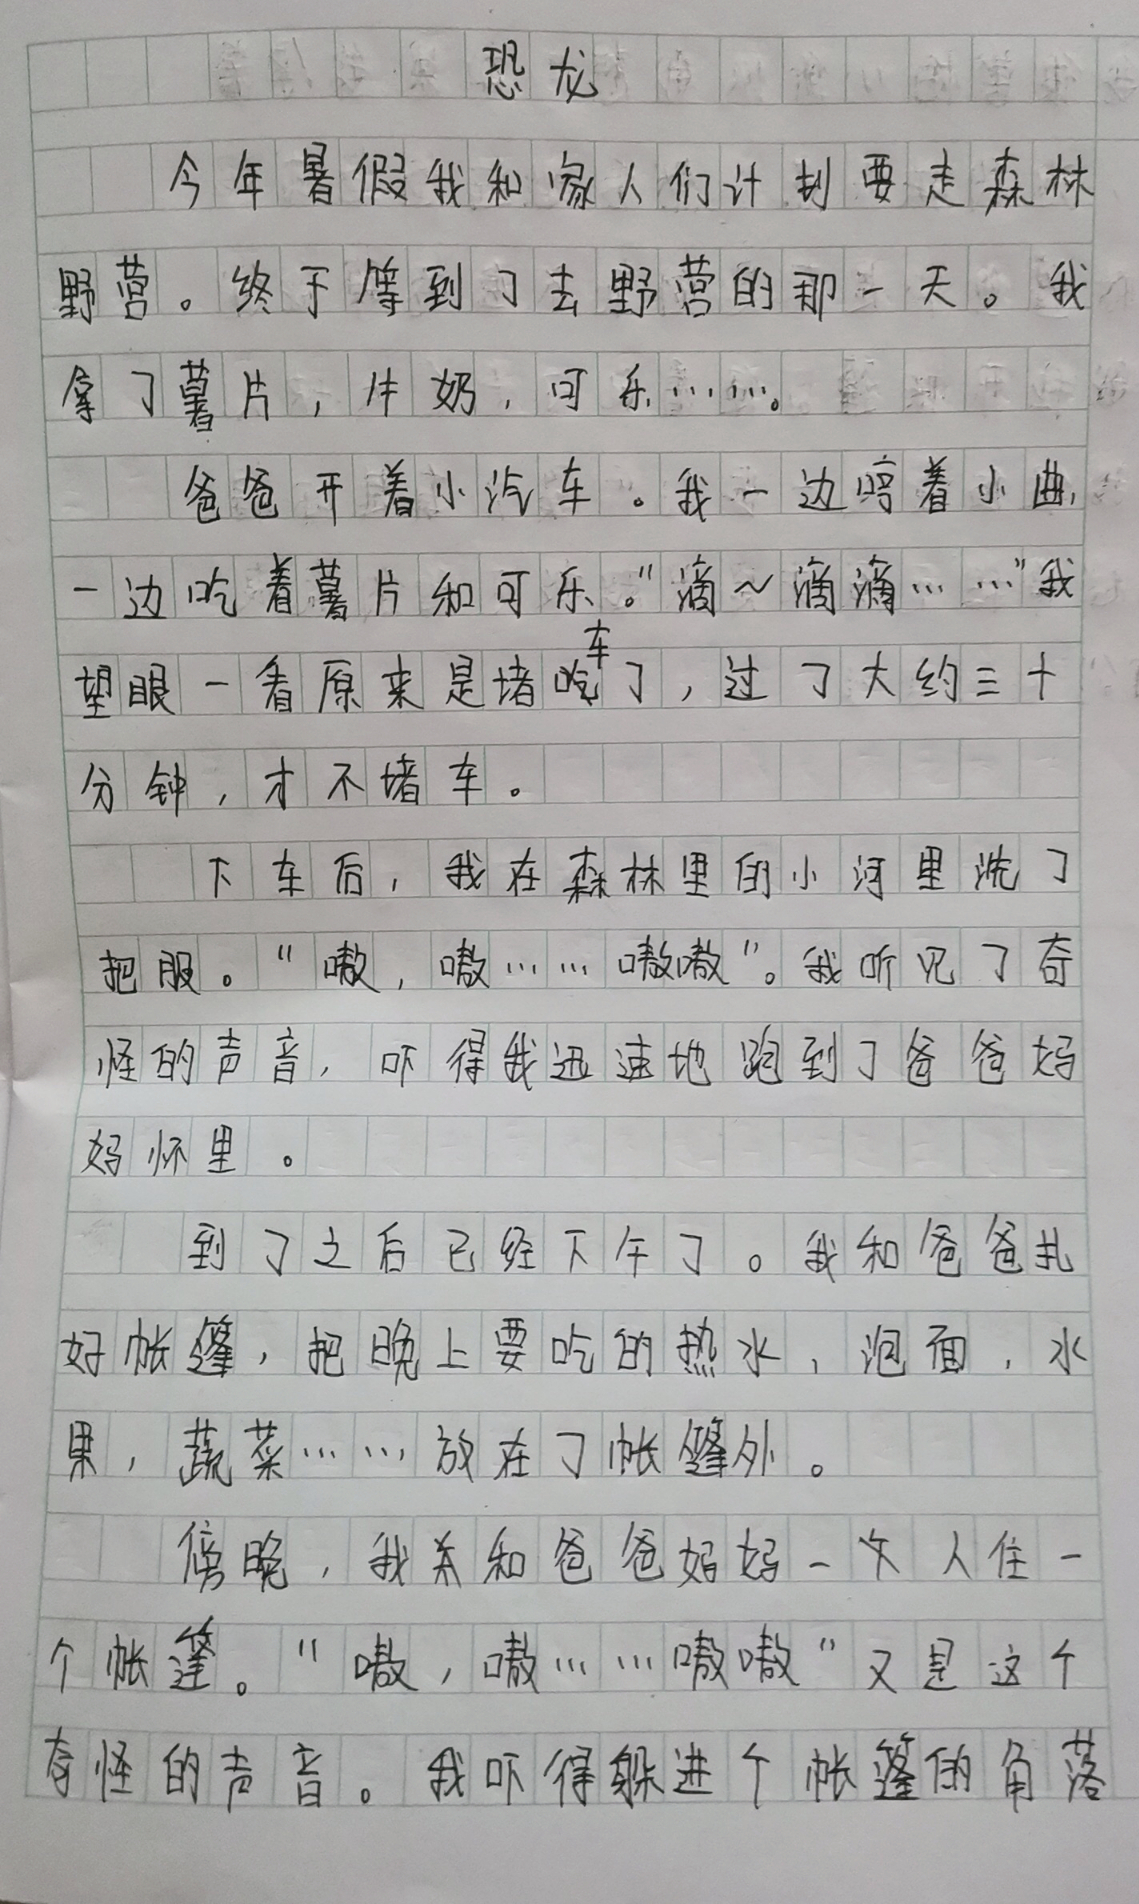 恐龙
今年暑假我和家人们计划要走森林
野营。终于等到了去野营的那一天。我
拿了薯片，牛奶，可乐……。
爸爸开着小汽车。我一边哼着小曲，
一边吃着薯片和可乐。“滴~滴滴……”我
望眼一看原来是堵车了，过了大约三十
分钟，才不堵车。
下车后，我在森林里的小河里洗了
把服。“嗷，嗷……嗷嗷”。我听见了奇
怪的声音，吓得我迅速地跑到了爸爸妈
妈怀里。
到了之后已经下午了。我和爸爸扎
好帐篷，把晚上要吃的热水，泡面，水
果，蔬菜……放在了帐篷外。
傍晚，我和爸爸妈妈一人住一
个帐篷。“嗷，嗷……嗷嗷”又是这个
奇怪的声音。我吓得躲进个帐篷的角落